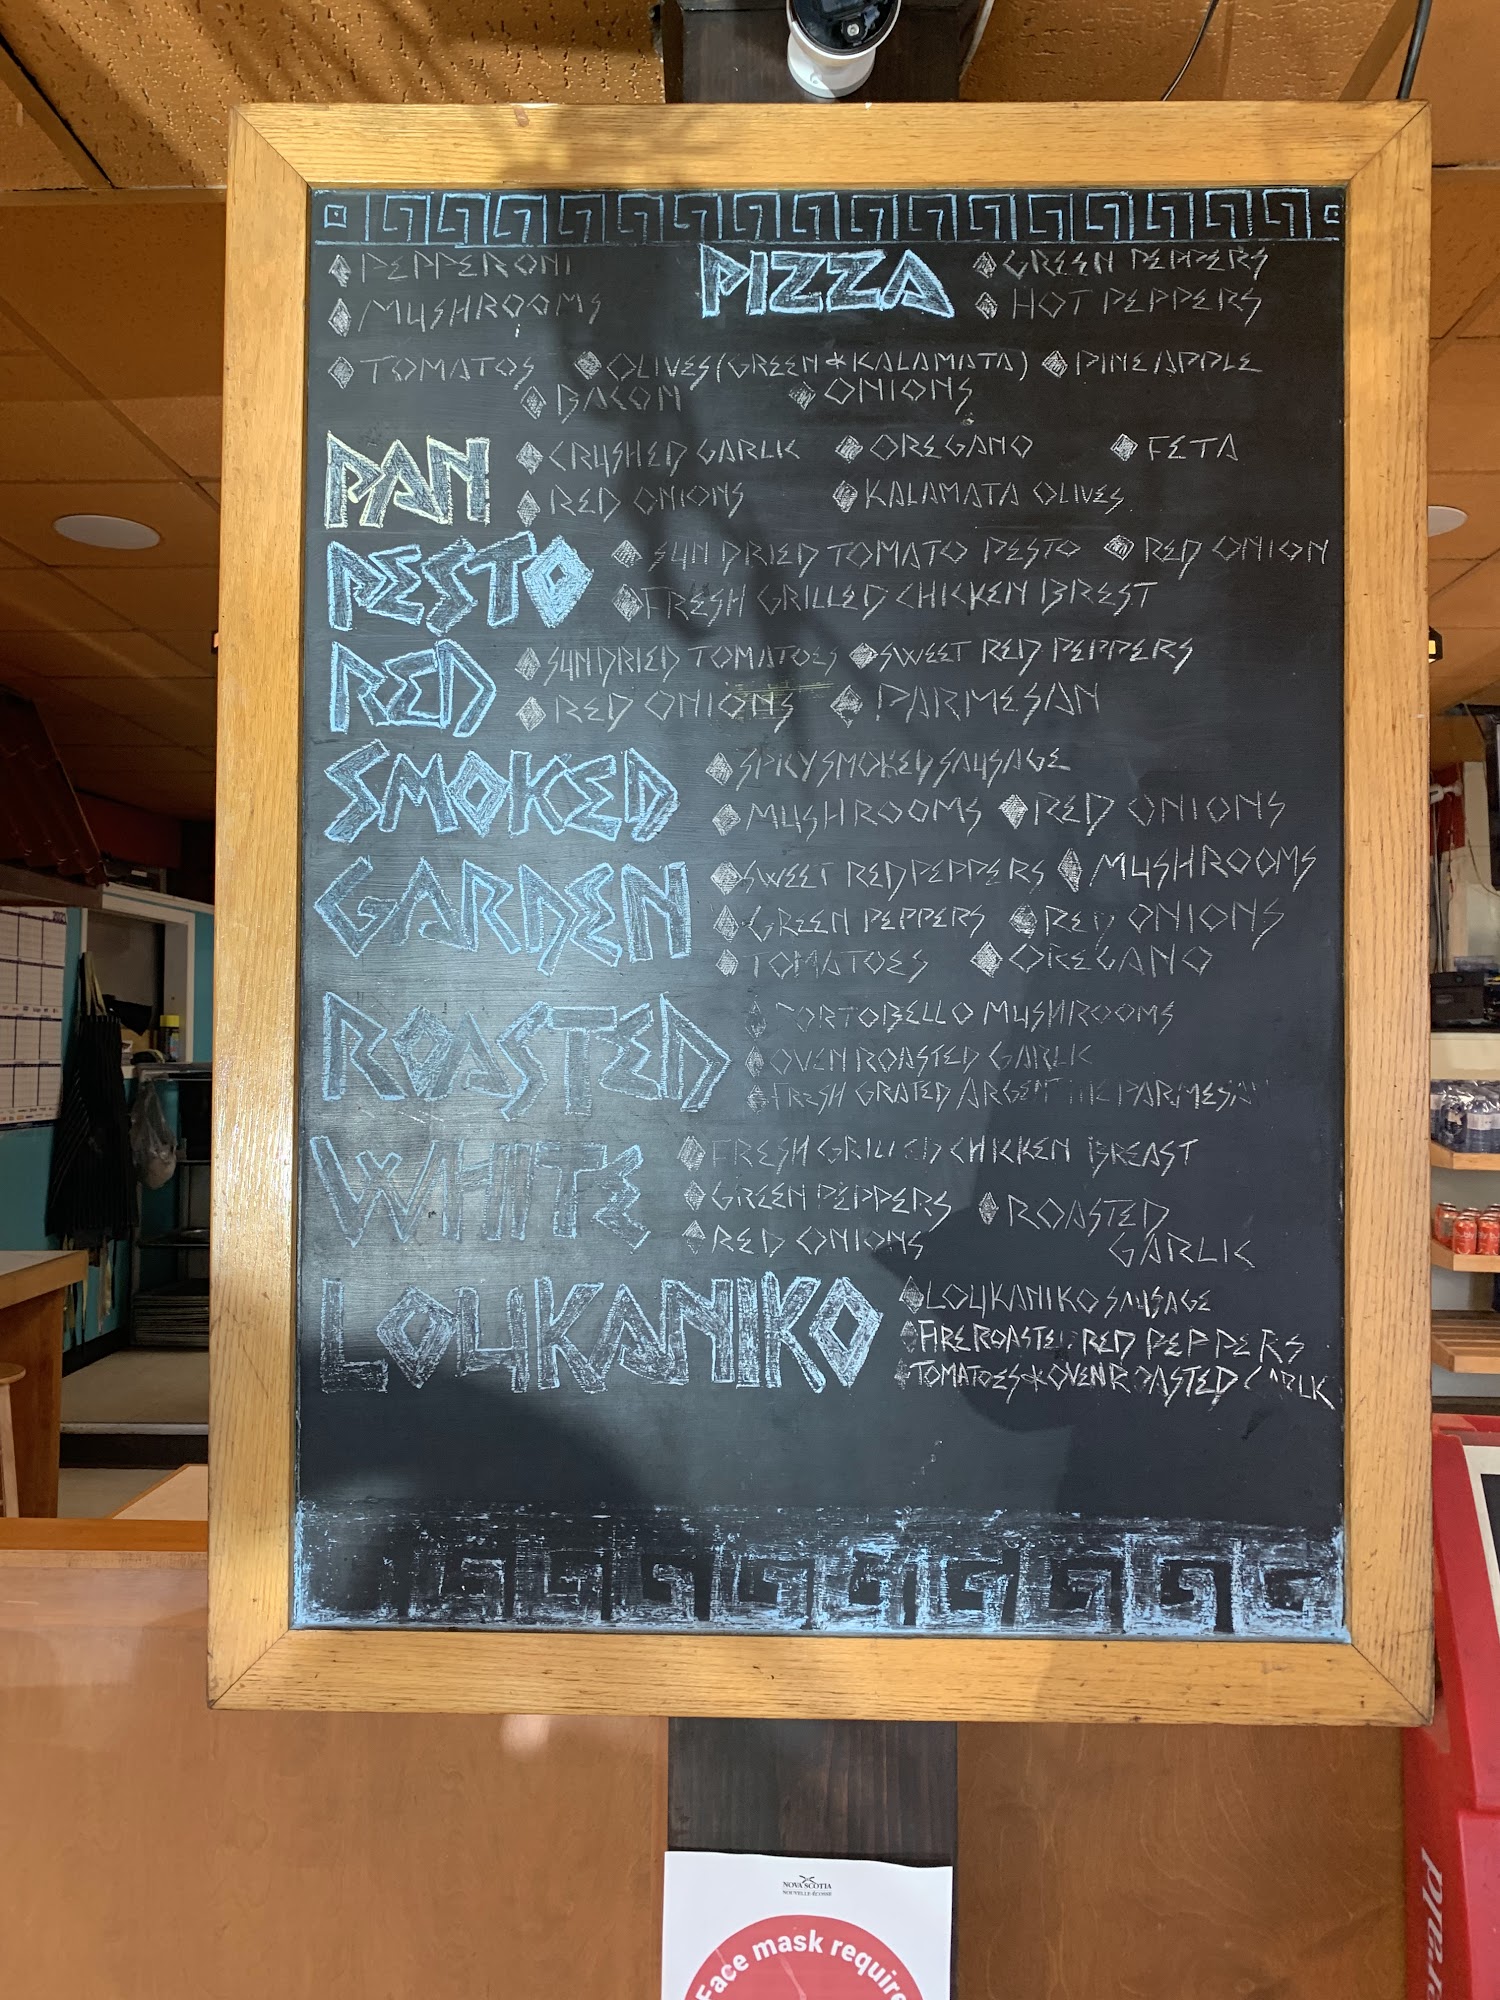 PEPPERONI
PIZZA
GREEN PEPPERS
MUSHROOMS
HOT PEPPERS
TOMATOS OLIVES (GREEN & KALAMATA) PINEAPPLE
BACON ONIONS
PAN
CRUSHED GARLIC OREGANO FETA
RED ONIONS KALAMATA OLIVES
PESTO
SUN DRIED TOMATO PESTO RED ONION
FRESH GRILLED CHICKEN BREST
RED
SUNDRIED TOMATOES SWEET RED PEPPERS
RED ONIONS PARMESAN
SMOKED
SPICY SMOKED SAUSAGE
MUSHROOMS RED ONIONS
GARDEN
SWEET RED PEPPERS MUSHROOMS
GREEN PEPPERS RED ONIONS
TOMATOES OREGANO
ROASTED
PORTOBELLO MUSHROOMS
OVEN ROASTED GARLIC
FRESH GRATED ARGENTINE PARMESAN
WHITE
FRESH GRILLED CHICKEN BREAST
GREEN PEPPERS ROASTED
RED ONIONS GARLIC
LOUKANIKO
LOUKANIKO SAUSAGE
FIRE ROASTED RED PEPPERS
TOMATOES & OVEN ROASTED GARLIC
NOVA SCOTIA
NOUVELLE-ÉCOSSE
Face mask require